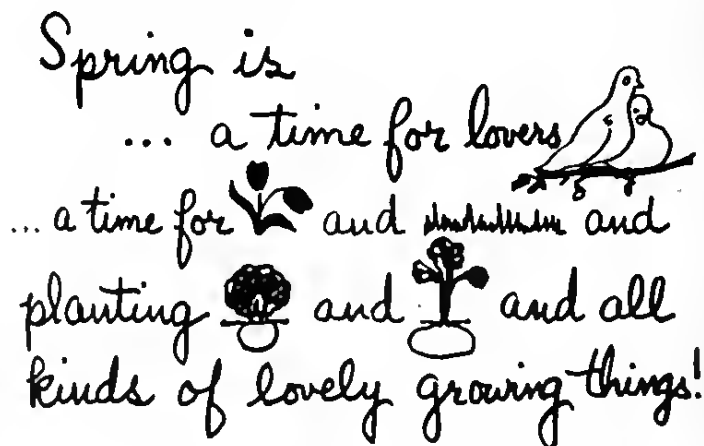 Spring is
... a time for lovers
... a time for and and
planting and and all
kinds of lovely growing things!